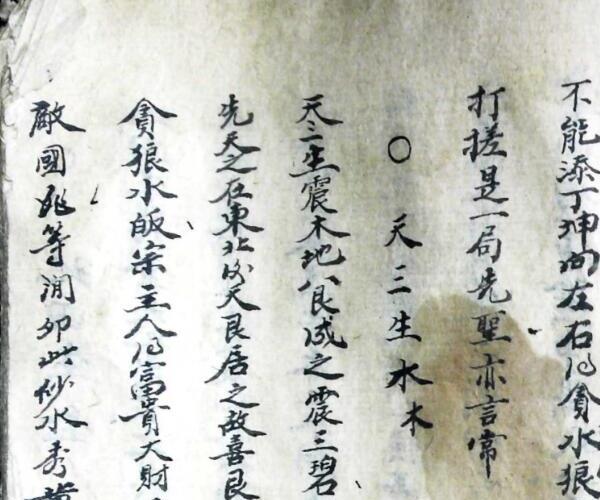 不能添丁坤向左右得貪水狼
打搓是一局先聖亦言常
○ 天三生水木
天三生震木地八艮成之震三碧
先天之在東北後天艮居之故喜艮
貪狼水皈宗主人得富貴大財
敵國非等閒卯此砂水秀